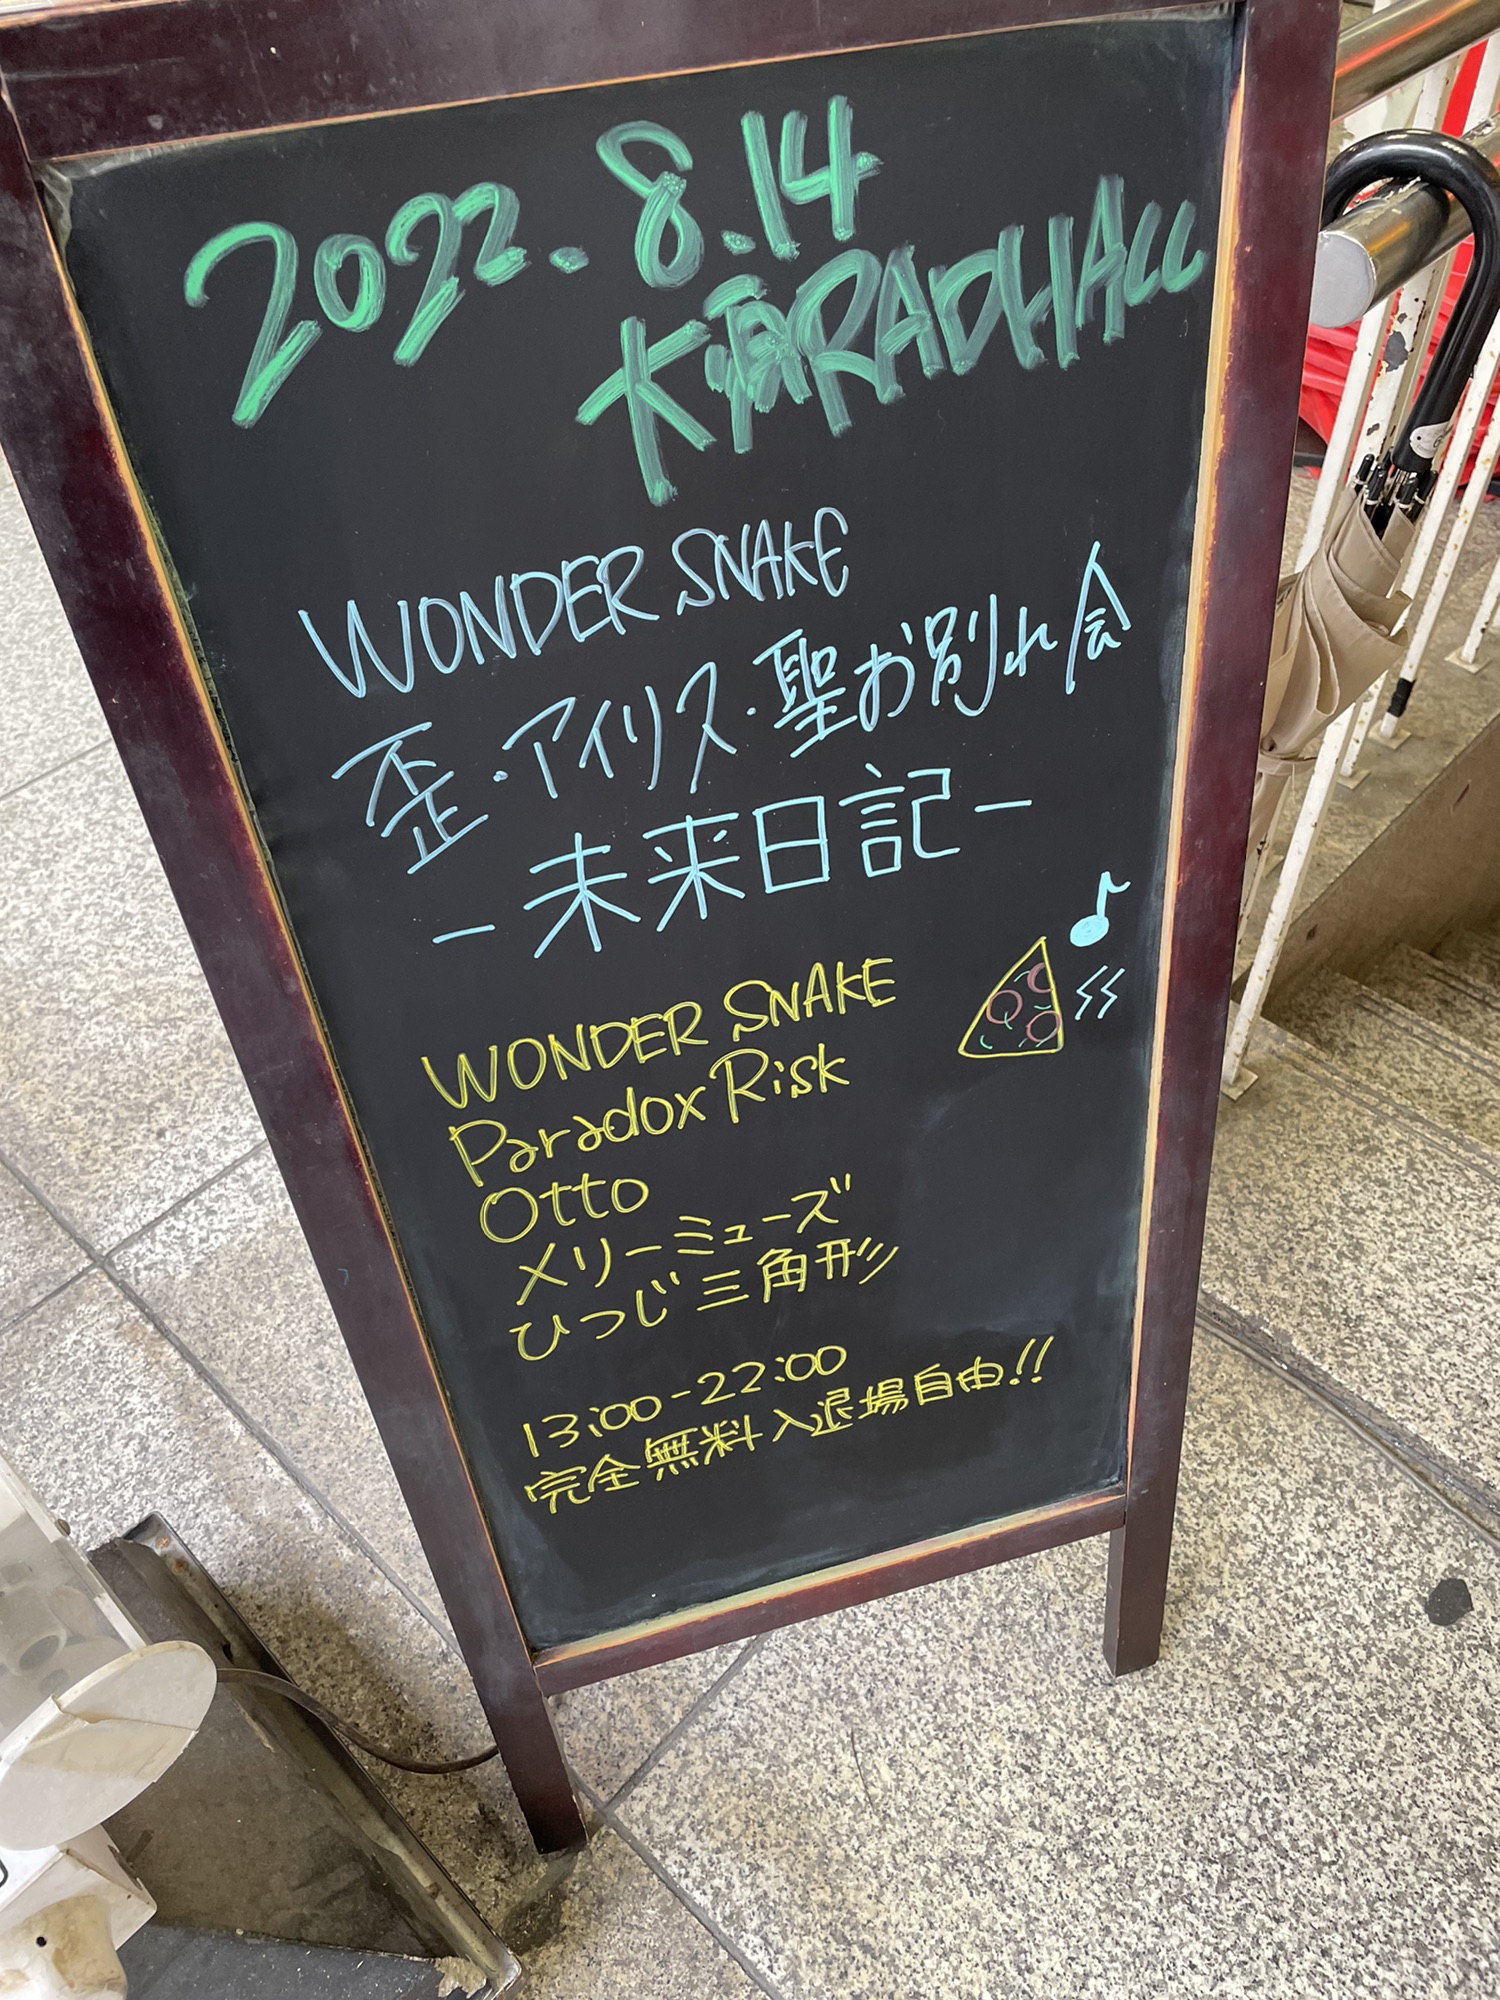 2022.8.14
KARADHALL
WONDER SNAKE
歪・アイリス・聖お別れ会
-未来日記-
WONDER SNAKE
Paradox Risk
Otto
メリーミューズ
ひつじ三角形
13:00-22:00
完全無料入退場自由!!